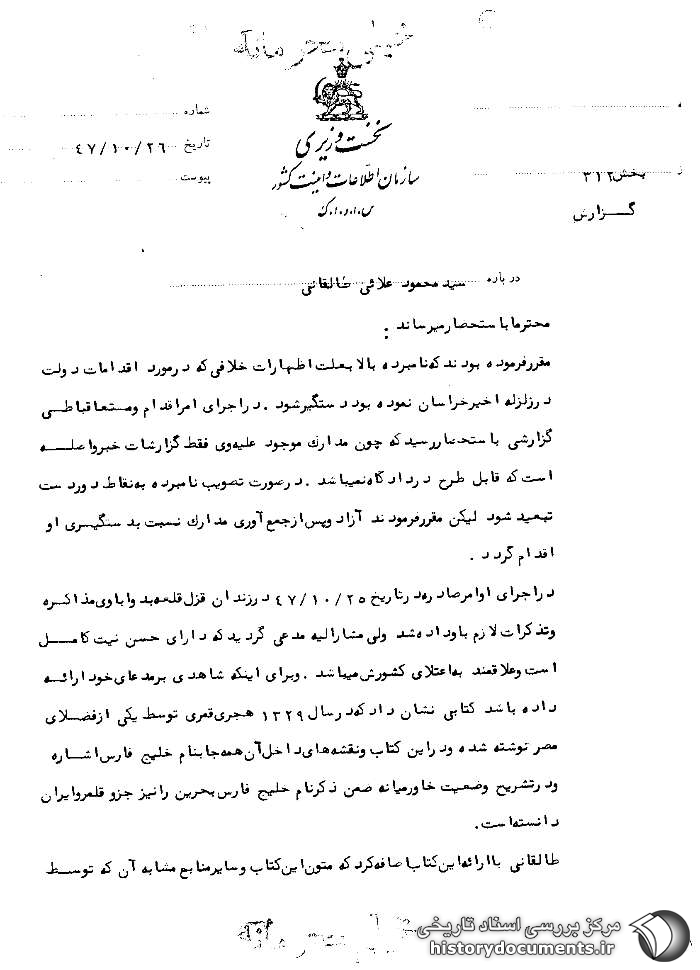 خیلی محرمانه
نخست وزیری
سازمان اطلاعات و امنیت کشور
س.ا.و.ا.ک
شماره
تاریخ ۴۷/۱۰/۲۶
پیوست
بخش ۳۱۲
گزارش
درباره سید محمود علائی طالقانی
محترما باستحضار میرساند :
مقرر فرموده بودند که نامبرده بالا بعلت اظهارات خلافی که در مورد اقدامات دولت
در زلزله اخیر خراسان نموده بود دستگیر شود . در اجرای امر اقدام ومتعاقباً طی
گزارشی باستحضار رسید که چون مدارك موجود علیه وی فقط گزارشات خبر واصله
است که قابل طرح در دادگاه نمیباشد . در صورت تصویب نامبرده به نقاط دور دست
تبعید شود لیکن مقرر فرمودند آزاد وپس از جمع آوری مدارك نسبت بدستگیری او
اقدام گردد .
در اجرای اوامر صادره در تاریخ ۴۷/۱۰/۲۵ در زندان قزل قلعه بدوا با وی مذاکره
وتذکرات لازم باو داده شد ولی مشارالیه مدعی گردید که دارای حسن نیت کامل
است وعلاقمند به اعتلای کشورش میباشد . وبرای اینکه شاهدی بر مدعای خود ارائه
داده باشد کتابی نشان داد که در سال ۱۳۲۹ هجری قمری توسط یکی از فضلای
مصر نوشته شده و در این کتاب ونقشه های داخل آن همه جا بنام خلیج فارس اشاره
و در تشریح وضعیت خاورمیانه ضمن ذکر نام خلیج فارس بحرین را نیز جزو قلمرو ایران
دانسته است .
طالقانی با ارائه این کتاب اضافه کرد که متون این کتاب وسایر منابع مشابه آن که توسط
خیلی محرمانه
مرکز بررسی اسناد تاریخی
historydocuments.ir